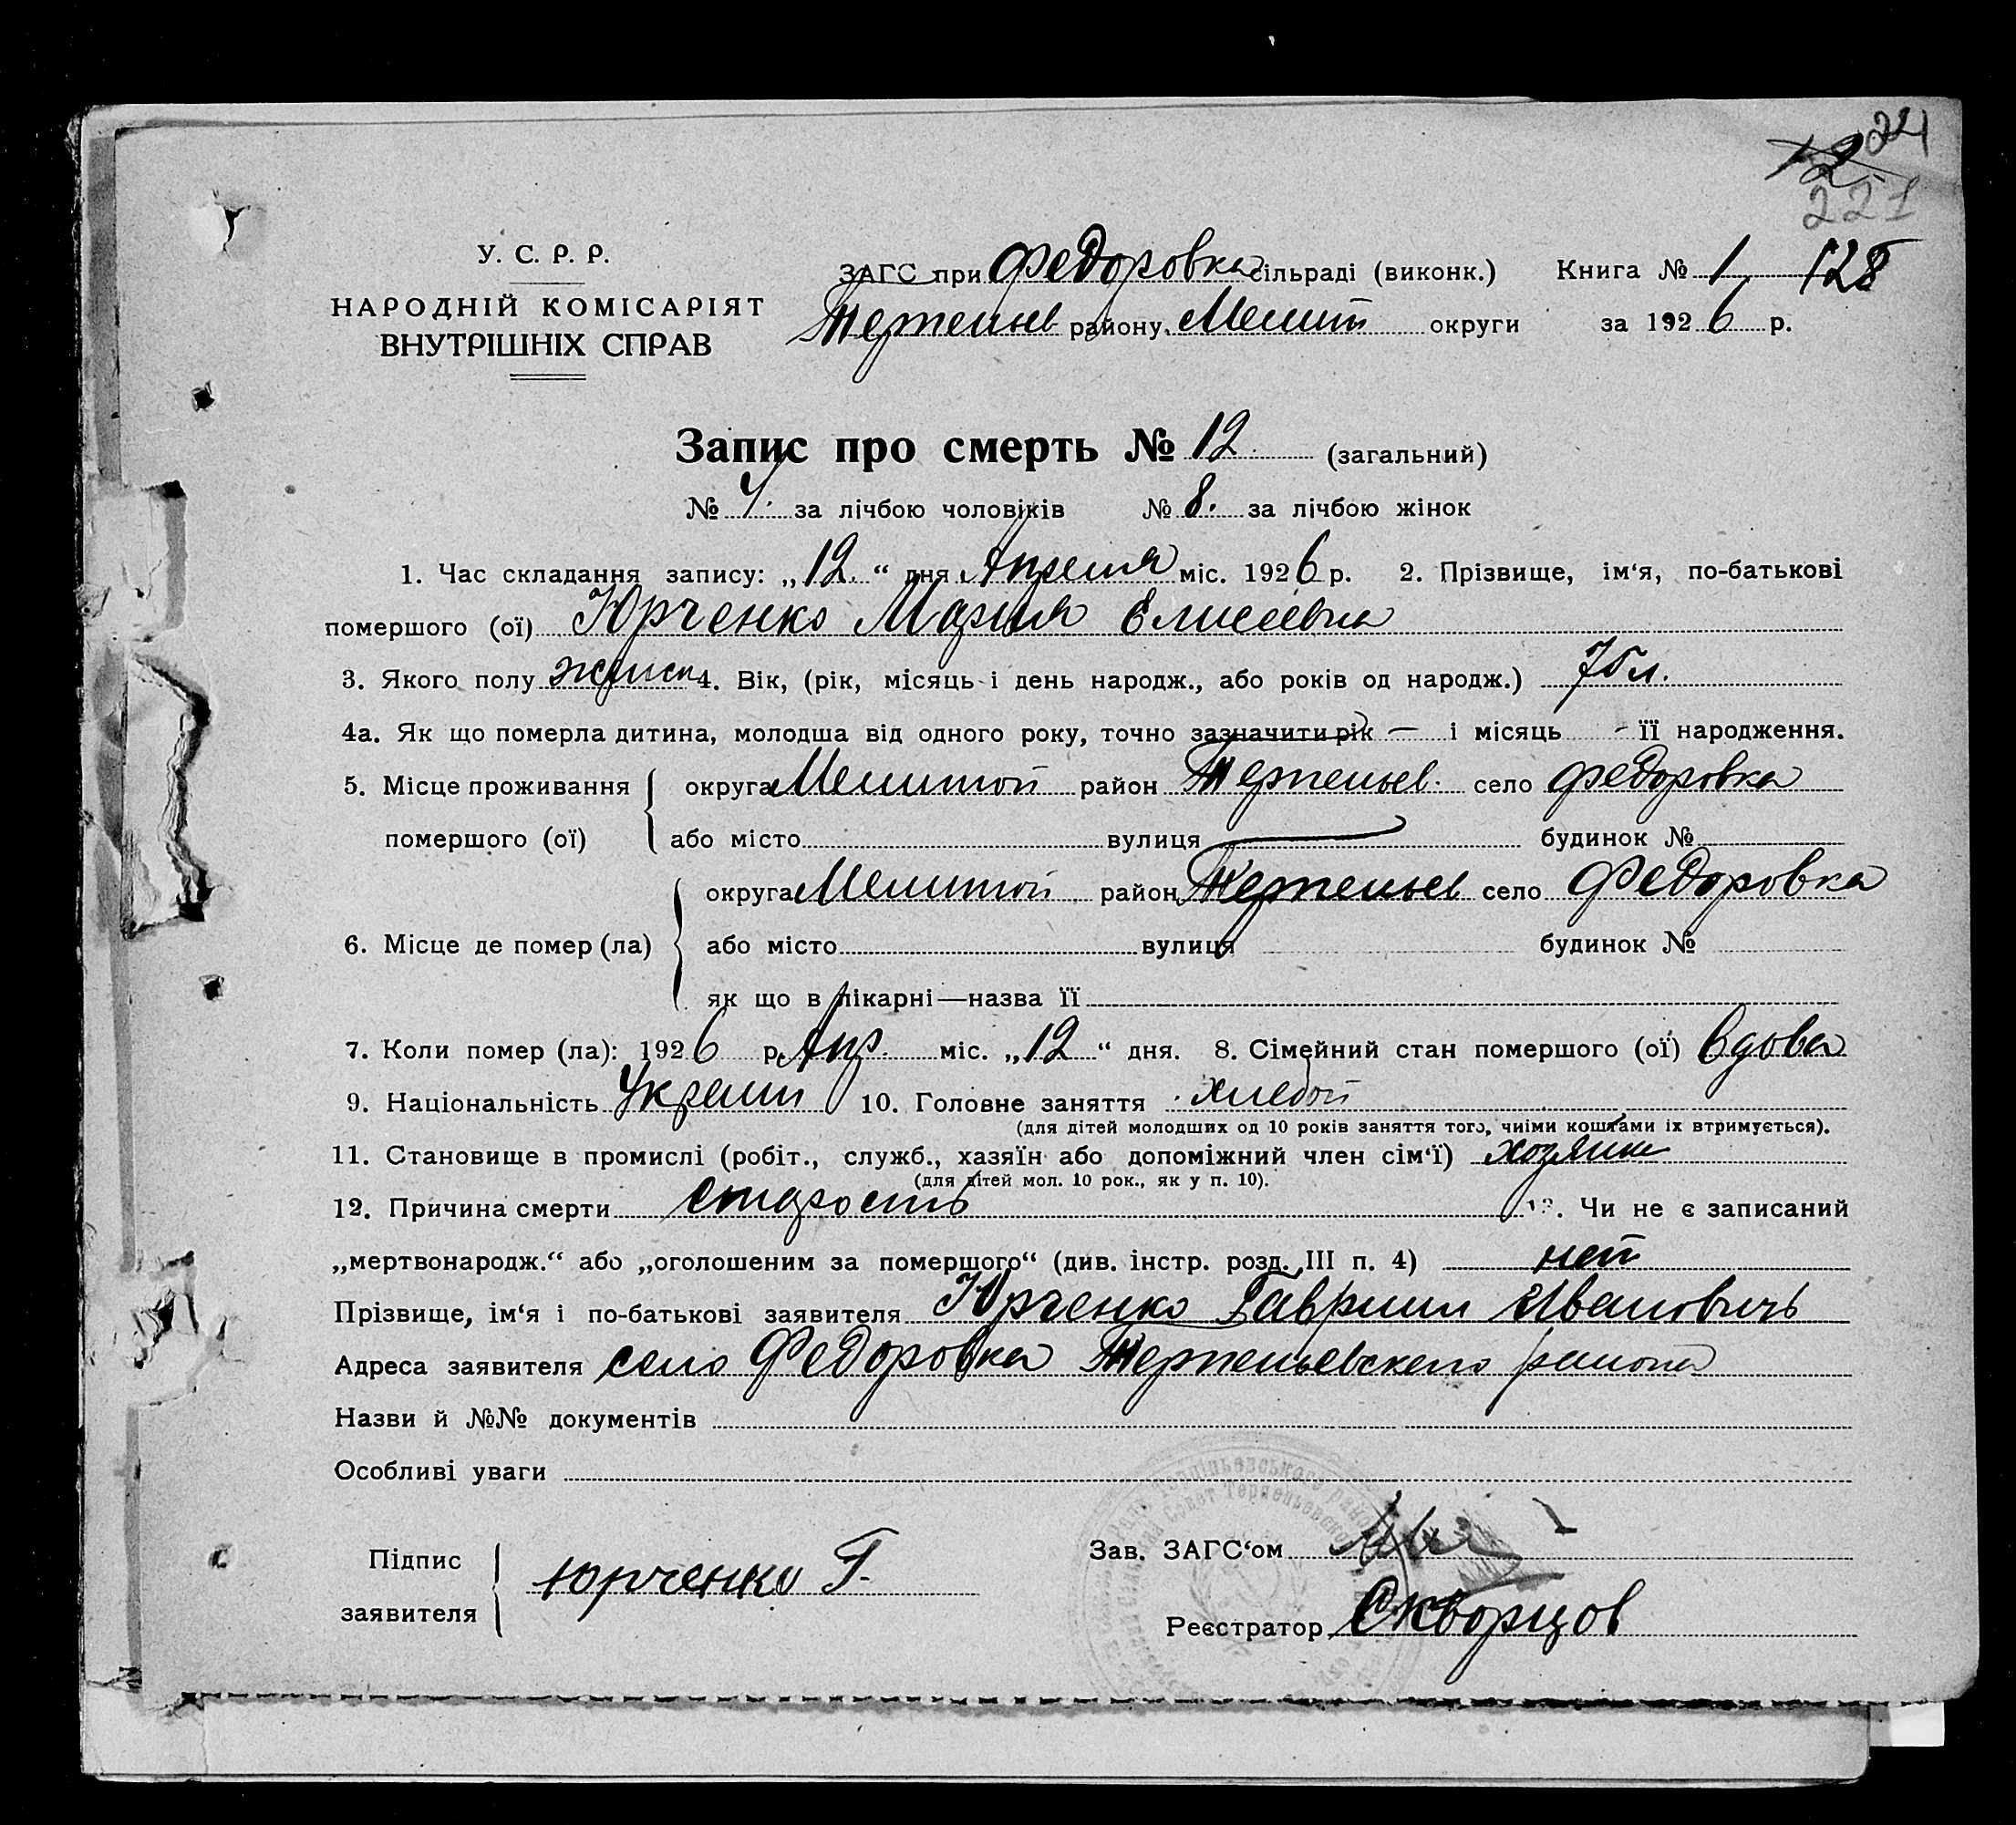 24
12
221
У. С. Р. Р.
НАРОДНІЙ КОМІСАРІЯТ
ВНУТРІШНІХ СПРАВ
ЗАГС при Федоровка сільраді (виконк.) Книга № 1 128
Терпеньев району Мелит округи за 1926 р.
Запис про смерть № 12. (загальний)
№ 4. за лічбою чоловіків № 8. за лічбою жінок
1. Час складання запису: „12.“ дня Апреля міс. 1926 р. 2. Прізвище, ім‘я, по-батькові
помершого (ої) Юрченко Мария Елисеевна
3. Якого полу женск 4. Вік, (рік, місяць і день народж., або років од народж.) 75 л.
4а. Як що померла дитина, молодша від одного року, точно зазначити рік — і місяць - її народження.
5. Місце проживання округа Мелитоп район Терпеньев. село Федоровка
помершого (ої) або місто вулиця будинок №
округа Мелитоп район Терпеньев село Федоровка
6. Місце де помер (ла) або місто вулиця будинок №
як що в лікарні—назва її
7. Коли помер (ла): 1926 р. Апр. міс. „12“ дня. 8. Сімейний стан помершого (ої) вдова
9. Національність Украин 10. Головне заняття хлебоп
(для дітей молодших од 10 років заняття того, чиїми коштами їх втримується).
11. Становище в промислі (робіт., служб., хазяїн або допоміжний член сім‘ї) хозяин
(для дітей мол. 10 рок., як у п. 10).
12. Причина смерти старость 13. Чи не є записаний
„мертвонародж.“ або „оголошеним за померщого“ (див. інстр. розд. III п. 4) нет
Прізвище, ім‘я і по-батькові заявителя Юрченко Гавриил Ивановичъ
Адреса заявителя село Федоровка Терпеньевского района
Назви й №№ документів
Особливі уваги
Підпис
заявителя Юрченко Г.
Зав. ЗАГС‘ом
Реєстратор Скворцов